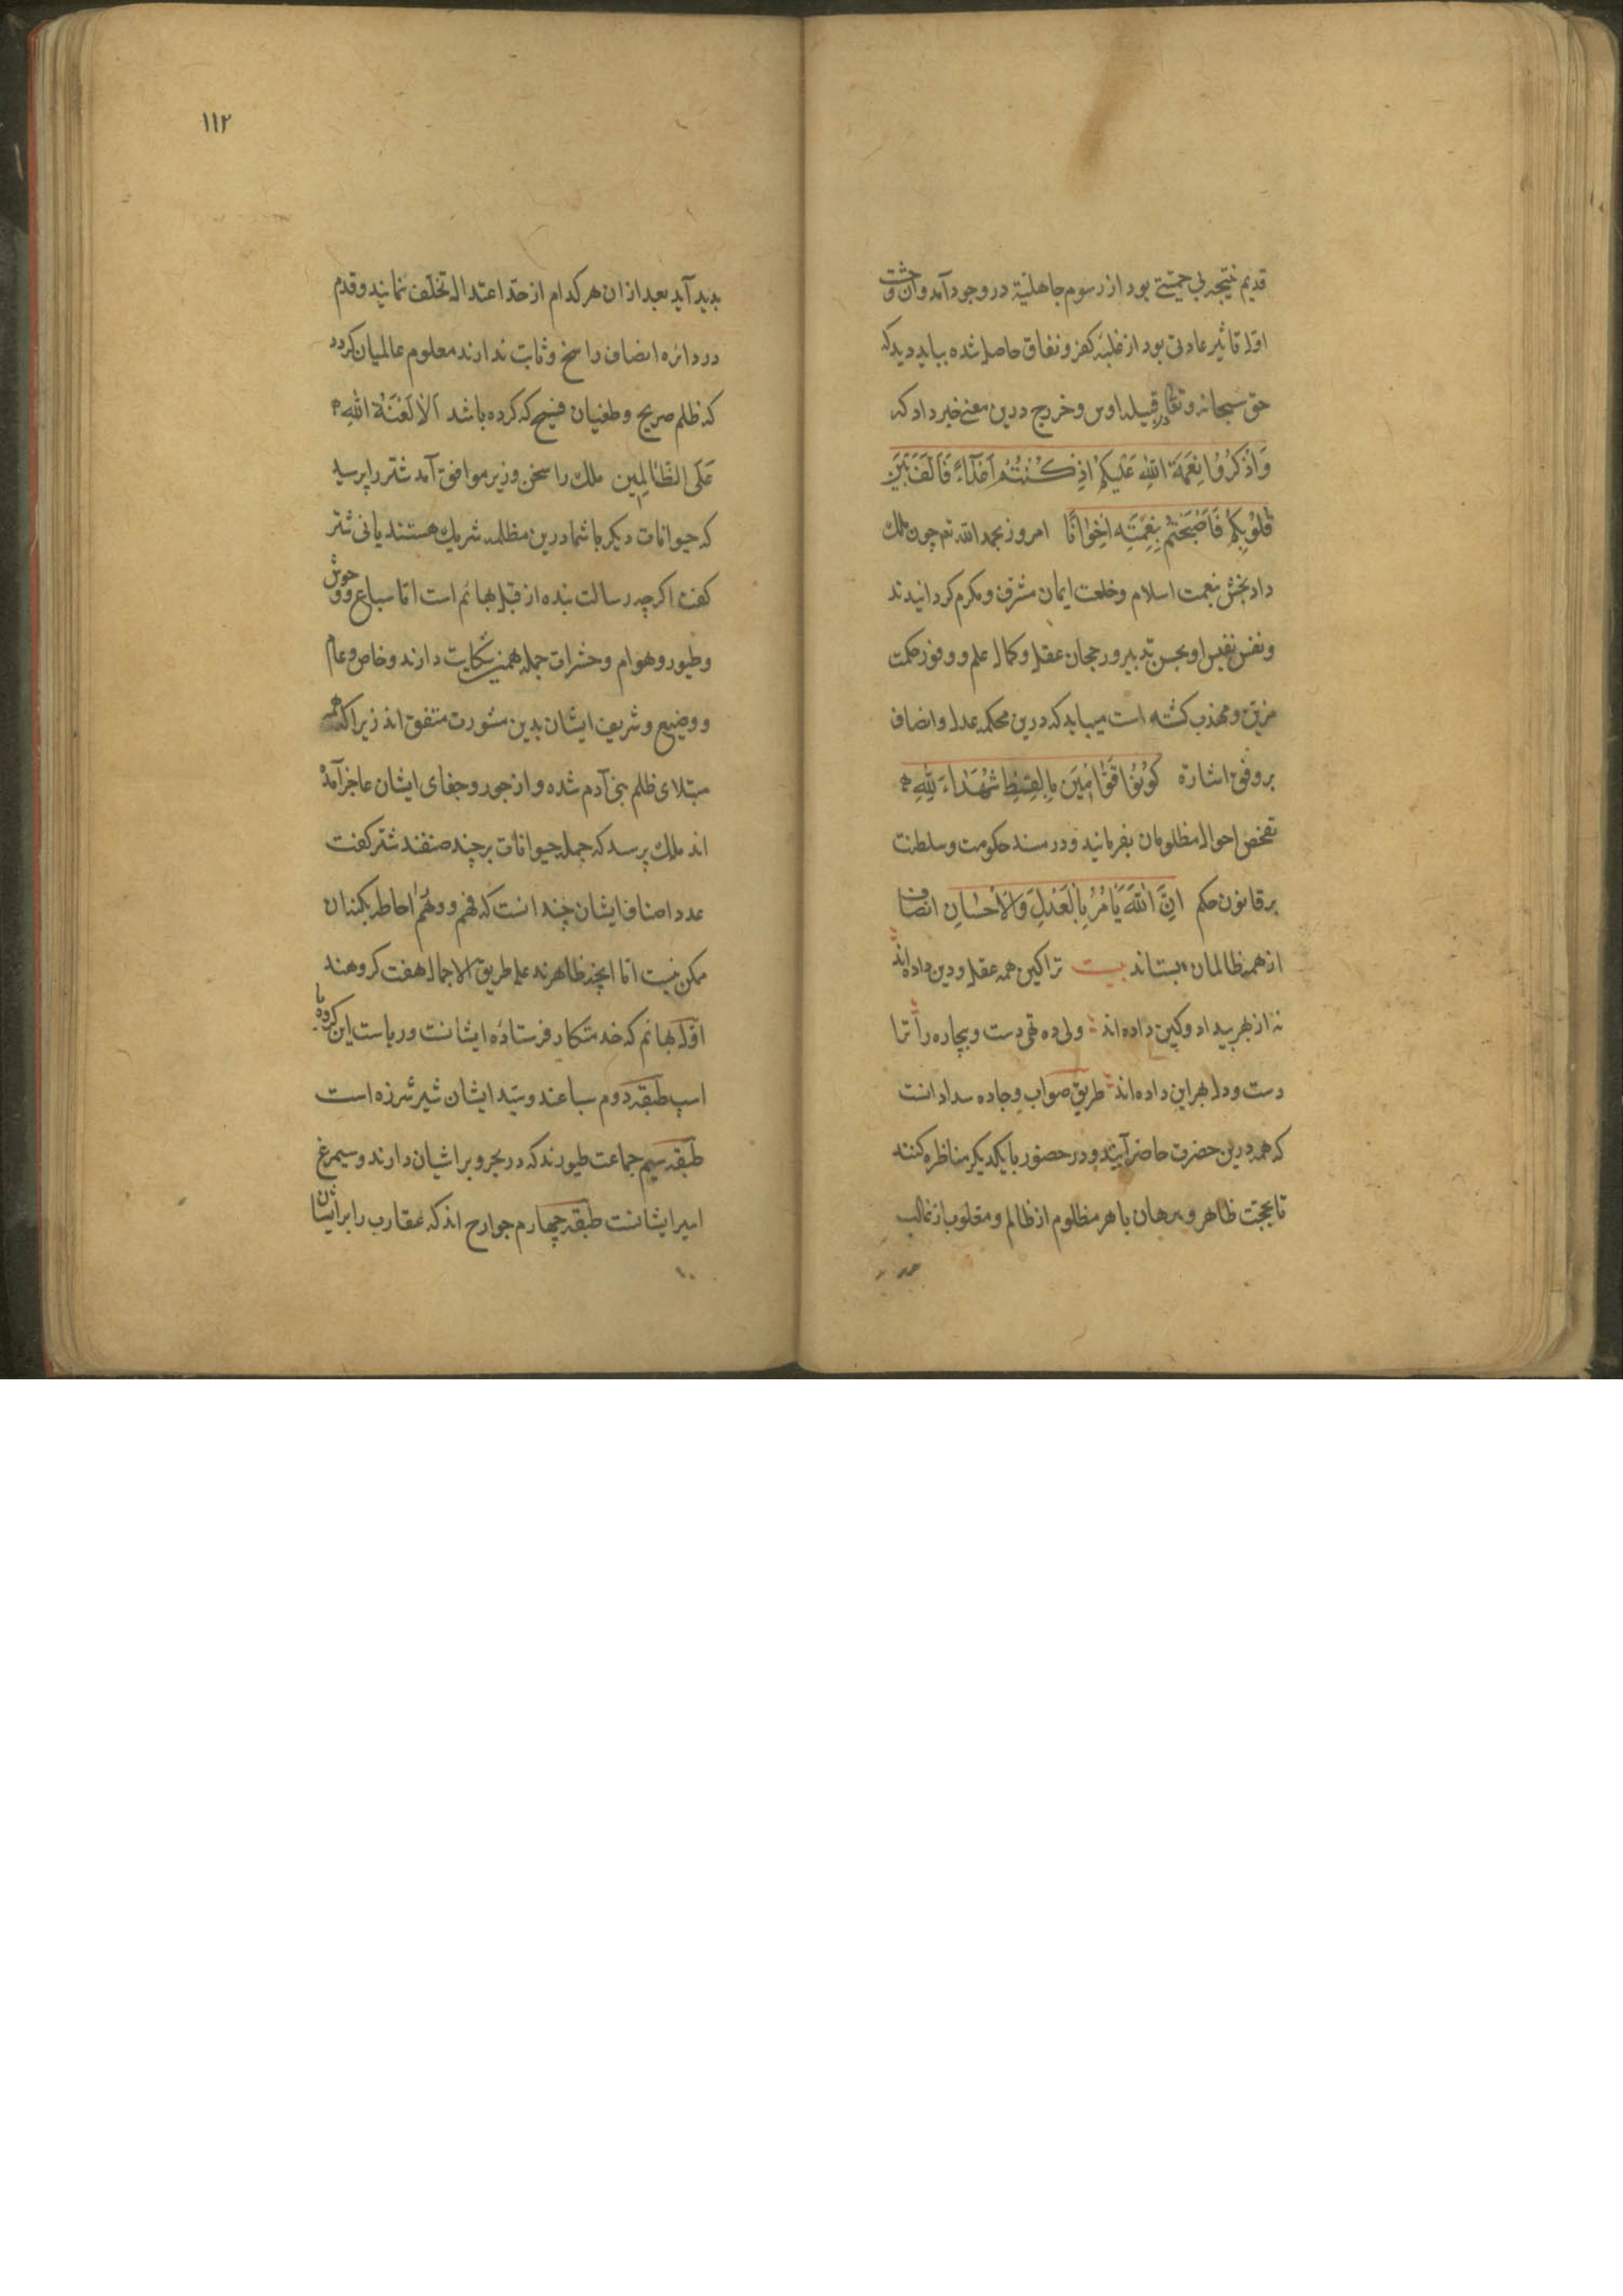 قدیم نتیجه بی حمیتی بود از رسوم جاهلیّة در وجود آمد وان وحشت
اول تاثیر عادتی بود از غلبهٔ کفر و نفاق حاصل شده بباید دید که
حق سبحانه و تعا در قبیله اوس و خزرج درین معنی خبر داد که
وَاذْکُرُوا نِعْمَةَ اللهِ عَلَیْکُمْ اِذْ کُنْتُمْ اَعْدَآءً فَاَلَّفَ بَیْنَ
قُلُوبِکُمْ فَاَصْبَحْتُمْ بِنِعْمَتِهِ اِخْوَانًا امروز بحمد الله تع چون ملک
داد بخش بنعمت اسلام و خلعت ایمان مشرف و مکرم کردانیدند
و نفس نفیس او بحسن تدبیر و رجحان عقل و کمال علم و وفور حکمت
مزین و مهذب کشته است میباید که درین محکمه عدل و انصاف
بر وفق اشارة کُونُوا قَوَّامِینَ بِالْقِسْطِ شُهَدَاءَ لِلّٰهِ
تفحص احوال مظلومان بفرمانید و در مسند حکومت و سلطنت
بر قانون حکم اِنَّ اللهَ یَاْمُرُ بِالْعَدْلِ وَالْاِحْسَانِ انصاف
از همه ظالمان بستاند بیت ترا کین همه عقل و دین داده اند
نه از بهر بیداد و کین داده اند ولی ده تهی دست و بیچاره را ترا
دست و دل بهر این داده اند طریق صواب و جاده سداد انست
که همه درین حضرت حاضر آیند و در حضور با یکدیکر مناظره کنند
تا بحجت ظاهر و برهان باهر مظلوم از ظالم و مغلوب از غالب
۱۱۲
بدید آید بعد از ان هر کدام از حد اعتدال تخلف نمایند و قدم
در دائره انصاف راسخ و ثابت ندارند معلوم عالمیان کردد
که ظلم صریح و طغیان فضیح که کرده باشد اَلَا لَعْنَةُ اللهِ
عَلَی الظَّالِمِین ملک را سخن وزیر موافق آمد شتر را پرسید
که حیوانات دیکر با شما درین مظلمه شریک هستند یا نی شتر
کفت اکرچه رسالت بنده از قبل بهائم است اما سباع و وحوش
و طیور و هوام و حشرات جمله همین شکایت دارند و خاص و عام
و وضیع و شریف ایشان بدین مشورت متفق اند زیرا که همه
مبتلای ظلم بنی آدم شده و از جور و جفای ایشان عاجز آمده
اند ملک پرسد که جمله حیوانات بر چند صنفند شتر کفت
عدد اصناف ایشان چندانست که فهم و وهم احاطر بکنه ان
ممکن نیست اما انچه ظاهرند علی طریق الاجمال هفت کروهند
اول بهائم که خدمتکار فرستاده ایشانست و ریاست این کروه با
اسپ طبقه دوم سباعند و سید ایشان شیر شرزه است
طبقه سیم جماعت طیورند که در بحر و بر اشیان دارند و سیمرغ
امیر ایشانست طبقه چهارم جوارح اند که عقاب را بر ایشان